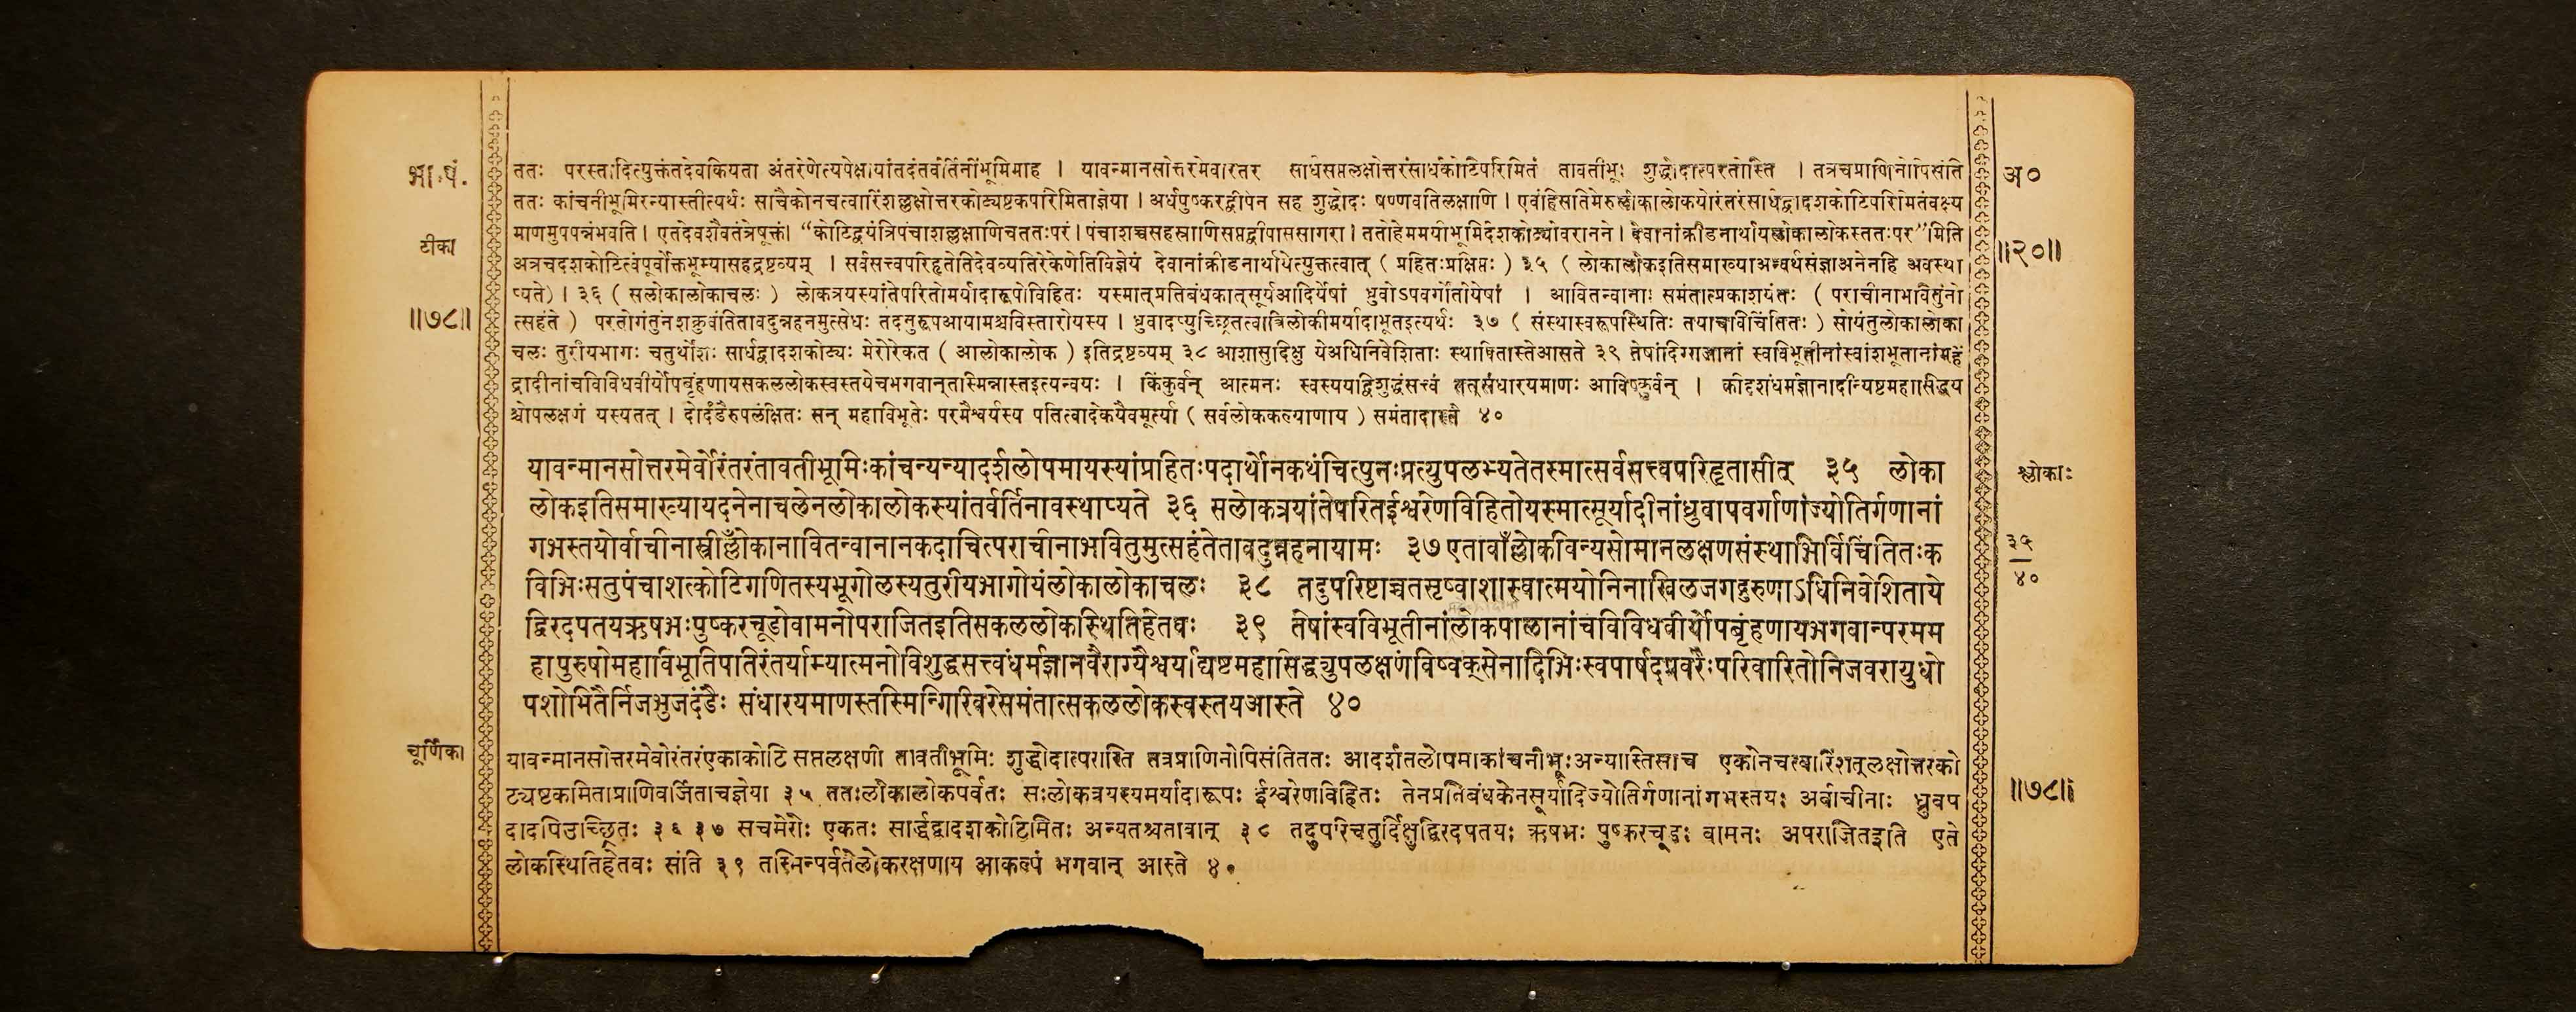 भा.पं.
टीका
॥७८॥
ततः परस्तादित्युक्तंतदेवकियता अंतरेणेत्यपेक्षायांतदंतर्वर्तिनींभूमिमाह । यावन्मानसोत्तरमेर्वोरंतरं सार्धसप्तलक्षोत्तरंसार्धकोटिपरिमितं तावतीभूः शुद्धोदात्परतोस्ति । तत्रचप्राणिनोपिसंति
ततः कांचनीभूमिरन्यास्तीत्यर्थः साचैकोनचत्वारिंशल्लक्षोत्तरकोट्यष्टकपरिमिताज्ञेया । अर्धपुष्करद्वीपेन सह शुद्धोदः षण्णवतिलक्षाणि । एवंहिसतिमेरुलोकालोकयोरंतरंसार्धद्वादशकोटिपरिमितंवक्ष्य
माणमुपपन्नंभवति । एतदेवशैवतंत्रेषूक्तं। “कोटिद्वयंत्रिपंचाशल्लक्षाणिचततःपरं। पंचाशच्चसहस्राणिसप्तद्वीपाससागरा। ततोहेममयीभूमिर्दशकोट्योवरानने। देवानांक्रीडनार्थायलोकालोकस्ततःपर”मिति
अत्रचदशकोटित्वंपूर्वोक्तभूम्यासहद्रष्टव्यम् । सर्वसत्त्वपरिहृतेतिदेवव्यतिरेकेणेतिविज्ञेयं देवानांक्रीडनार्थायेत्युक्तत्वात् ( प्रहितःप्रक्षिप्तः ) ३५ ( लोकालोकइतिसमाख्याअन्वर्थसंज्ञाअनेनहि अवस्था
प्यते)। ३६ ( सलोकालोकाचलः ) लोकत्रयस्यांतेपरितोमर्यादारूपोविहितः यस्मात्प्रतिबंधकात्सूर्यआदिर्येषां ध्रुवोऽपवर्गोंतोयेषां । आवितन्वानाः समंतात्प्रकाशयंतः ( पराचीनाभवितुंनो
त्सहंते ) परतोगंतुंनशक्नुवंतितावदुन्नहनमुत्सेधः तदनुरूपआयामश्चविस्तारोयस्य । ध्रुवादप्युच्छ्रितत्वात्त्रिलोकीमर्यादाभूतइत्यर्थः ३७ ( संस्थास्वरूपस्थितिः तयाचविचिंतितः ) सोयंतुलोकालोका
चलः तुरीयभागः चतुर्थोंशः सार्धद्वादशकोट्यः मेरोरेकत ( आलोकालोक ) इतिद्रष्टव्यम् ३८ आशासुदिक्षु येअधिनिवेशिताः स्थापितास्तेआसते ३९ तेषांदिग्गजानां स्वविभूतीनांस्वांशभूतानांमहें
द्रादीनांचविविधवीर्योपबृंहणायसकललोकस्वस्तयेचभगवान्तस्मिन्नास्तइत्यन्वयः । किंकुर्वन् आत्मनः स्वस्ययद्विशुद्धंसत्त्वं तत्संधारयमाणः आविष्कुर्वन् । कीदृशंधर्मज्ञानादीन्यष्टमहासिद्धय
श्चोपलक्षणं यस्यतत् । दोर्दंडैरुपलंक्षितः सन् महाविभूतेः परमैश्वर्यस्य पतित्वादेकयैवमूर्त्या ( सर्वलोककल्याणाय ) समंतादास्ते ४०
यावन्मानसोत्तरमेर्वोरंतरंतावतीभूमिःकांचन्यन्यादर्शतलोपमायस्यांप्राहितःपदार्थोनकथंचित्पुनःप्रत्युपलभ्यतेतस्मात्सर्वसत्त्वपरिहृतासीत् ३५ लोका
लोकइतिसमाख्यायदनेनाचलेनलोकालोकस्यांतर्वर्तिनावस्थाप्यते ३६ सलोकत्रयांतेपरितईश्वरेणविहितोयस्मात्सूर्यादीनांध्रुवापवर्गाणांज्योतिर्गणानां
गभस्तयोर्वाचीनास्त्रीँल्लोकानावितन्वानानकदाचित्पराचीनाभवितुमुत्सहंतेतावदुन्नहनायामः ३७ एतावाँल्लोकविन्यसोमानलक्षणसंस्थाभिर्विचिंतितःक
विभिःसतुपंचाशत्कोटिगणितस्यभूगोलस्यतुरीयभागोयंलोकालोकाचलः ३८ तदुपरिष्टाच्चतसृष्वाशास्वात्मयोनिनाखिलजगद्गुरुणाऽधिनिवेशिताये
द्विरदपतयऋषभःपुष्करचूडोवामनोपराजितइतिसकललोकस्थितिहेतवः ३९ तेषांस्वविभूतीनांलोकपालानांचविविधवीर्योपबृंहणायभगवान्परमम
हापुरुषोमहाविभूतिपतिरंतर्याम्यात्मनोविशुद्धसत्त्वंधर्मज्ञानवैराग्यैश्वर्याद्यष्टमहासिद्ध्युपलक्षणंविष्वक्सेनादिभिःस्वपार्षदप्रवरैःपरिवारितोनिजवरायुधो
पशोभितैर्निजभुजदंडैः संधारयमाणस्तस्मिन्गिरिवरेसमंतात्सकललोकस्वस्तयआस्ते ४०
चूर्णिका
यावन्मानसोत्तरमेर्वोरंतरंएकाकोटि सप्तलक्षणी तावतीभूमिः शुद्धोदात्परास्ति तत्रप्राणिनोपिसंतिततः आदर्शतलोपमाकांचनीभूःअन्यास्तिसाच एकोनचत्वारिंशत्लक्षोत्तरको
ट्यष्टकमिताप्राणिवर्जिताचज्ञेया ३५ ततःलोकालोकपर्वतः सःलोकत्रयस्यमर्यादारूपः ईश्वरेणविहितः तेनप्रतिबंधकेनसूर्यादिज्योतिर्गणानांगभस्तयः अर्वाचीनाः ध्रुवप
दादपिउच्छ्रितः ३६ ३७ सचमेरोः एकतः सार्द्धद्वादशकोटिमितः अन्यतश्चतावान् ३८ तदुपरिचतुर्दिक्षुद्विरदपतयः ऋषभः पुष्करचूडः वामनः अपराजितइति एते
लोकस्थितिहेतवः संति ३९ तस्मिन्पर्वतेलोकरक्षणाय आकल्पं भगवान् आस्ते ४०
अ०
॥२०॥
श्लोकाः
३५
४०
॥७८॥